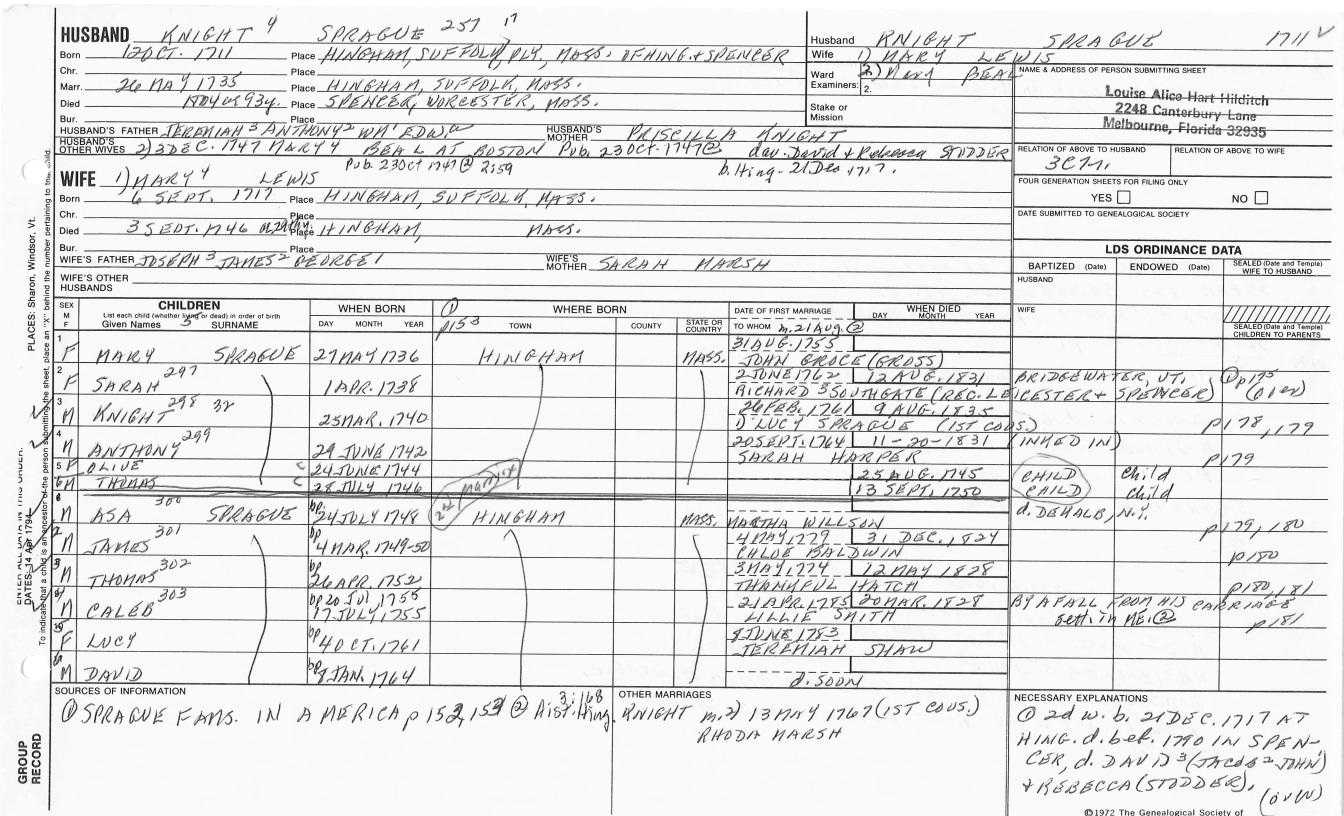 HUSBAND KNIGHT 4 SPRAGUE 257 17
Born 12 OCT. 1711 Place HINGHAM, SUFFOLK, PLY, MASS. OF HING. + SPENCER
Chr. Place
Marr. 26 MAY 1735 Place HINGHAM, SUFFOLK, MASS.
Died 93y. Place SPENCER, WORCESTER, MASS.
Bur. Place
HUSBAND'S FATHER JEREMIAH 3 ANTHONY 2 WM 1 EDW. HUSBAND'S MOTHER PRISCILLA KNIGHT
HUSBAND'S OTHER WIVES 2) 3 DEC. 1747 MARY 4 BEAL AT BOSTON Pub. 23 OCT. 1747 @ dau. David & Rebecca STODDER
Pub. 23 Oct 1747 @ 2:59 b. Hing. 21 Dec 1717.
WIFE 1) MARY 4 LEWIS
Born 6 SEPT. 1717 Place HINGHAM, SUFFOLK, MASS.
Chr. Place
Died 3 SEPT. 1746 Place HINGHAM, MASS.
Bur. Place
WIFE'S FATHER JOSEPH 3 JAMES 2 GEORGE 1 WIFE'S MOTHER SARAH MARSH
WIFE'S OTHER HUSBANDS
Husband KNIGHT SPRAGUE 1711 V
Wife 1) MARY LEWIS
Ward Examiners: 2) Mary BEAL
2.
Stake or Mission
NAME & ADDRESS OF PERSON SUBMITTING SHEET
Louise Alice Hart Hilditch
2248 Canterbury Lane
Melbourne, Florida 32935
RELATION OF ABOVE TO HUSBAND RELATION OF ABOVE TO WIFE
3C7r.
FOUR GENERATION SHEETS FOR FILING ONLY
YES NO
DATE SUBMITTED TO GENEALOGICAL SOCIETY
LDS ORDINANCE DATA
BAPTIZED (Date) ENDOWED (Date) SEALED (Date and Temple) WIFE TO HUSBAND
HUSBAND
WIFE
SEALED (Date and Temple) CHILDREN TO PARENTS
SEX M F CHILDREN WHEN BORN WHERE BORN DATE OF FIRST MARRIAGE WHEN DIED
List each child (whether living or dead) in order of birth
Given Names 5 SURNAME DAY MONTH YEAR ① p153 TOWN COUNTY STATE OR COUNTRY TO WHOM m. 21 Aug. ② DAY MONTH YEAR
1 F MARY SPRAGUE 27 MAY 1736 HINGHAM MASS. 31 AUG. 1755
JOHN GROCE (GROSS)
2 F SARAH 297 1 APR. 1738 2 JUNE 1762 12 AUG. 1831 BRIDGEWATER, VT. ① p175
RICHARD 3 SOUTHGATE (REC. LEICESTER + SPENCER) (over)
3 M KNIGHT 298 32 25 MAR. 1740 26 FEB. 1761 9 AUG. 1835
LUCY SPRAGUE (1ST COUS.) p178, 179
4 M ANTHONY 299 29 JUNE 1742 20 SEPT. 1764 11-20-1831 (INKED IN)
SARAH HARPER p179
5 F OLIVE C 24 JUNE 1744 25 AUG. 1745 CHILD Child
6 M THOMAS C 28 JULY 1746 13 SEPT. 1750 CHILD child
M ASA 300 SPRAGUE bp 24 JULY 1748 2nd marriage HINGHAM MASS. d. DEKALB, N.Y.
MARTHA WILLSON p179, 180
2 M JAMES 301 bp 4 MAR. 1749-50 4 MAY 1779 31 DEC. 1824
CHLOE BALDWIN p180
3 M THOMAS 302 bp 26 APR. 1752 3 MAY 1774 12 MAY 1828
THANKFUL HATCH p180, 181
M CALEB 303 bp 20 Jul 1755 21 APR 1785 20 MAR. 1828 BY A FALL FROM HIS CARRIAGE
17 JULY 1755 LILLIE SMITH sett. in ME. ② p181
F LUCY bp 4 OCT. 1761 8 JUNE 1783
JEREMIAH SHAW
6 M DAVID bp 8 JAN. 1764 d. SOON
SOURCES OF INFORMATION
① SPRAGUE FAMS. IN AMERICA p 152, 153 ② Hist. Hing. 3:168
OTHER MARRIAGES
KNIGHT m. 2) 13 MAY 1767 (1ST COUS.)
RHODA MARSH
NECESSARY EXPLANATIONS
① 2d W. b. 21 DEC. 1717 AT
HING. d. bef. 1790 IN SPEN-
CER, d. DAVID 3 (JACOB 2 JOHN 1)
+ REBECCA (STODDER).
(over)
©1972 The Genealogical Society of
PLACES: Sharon, Windsor, Vt.
ENTER ALL DATA IN THIS ORDER:
DATES: 14 Apr 1794
To indicate that a child is an ancestor of the person submitting the sheet, place an "X" behind the number pertaining to that child.
GROUP RECORD